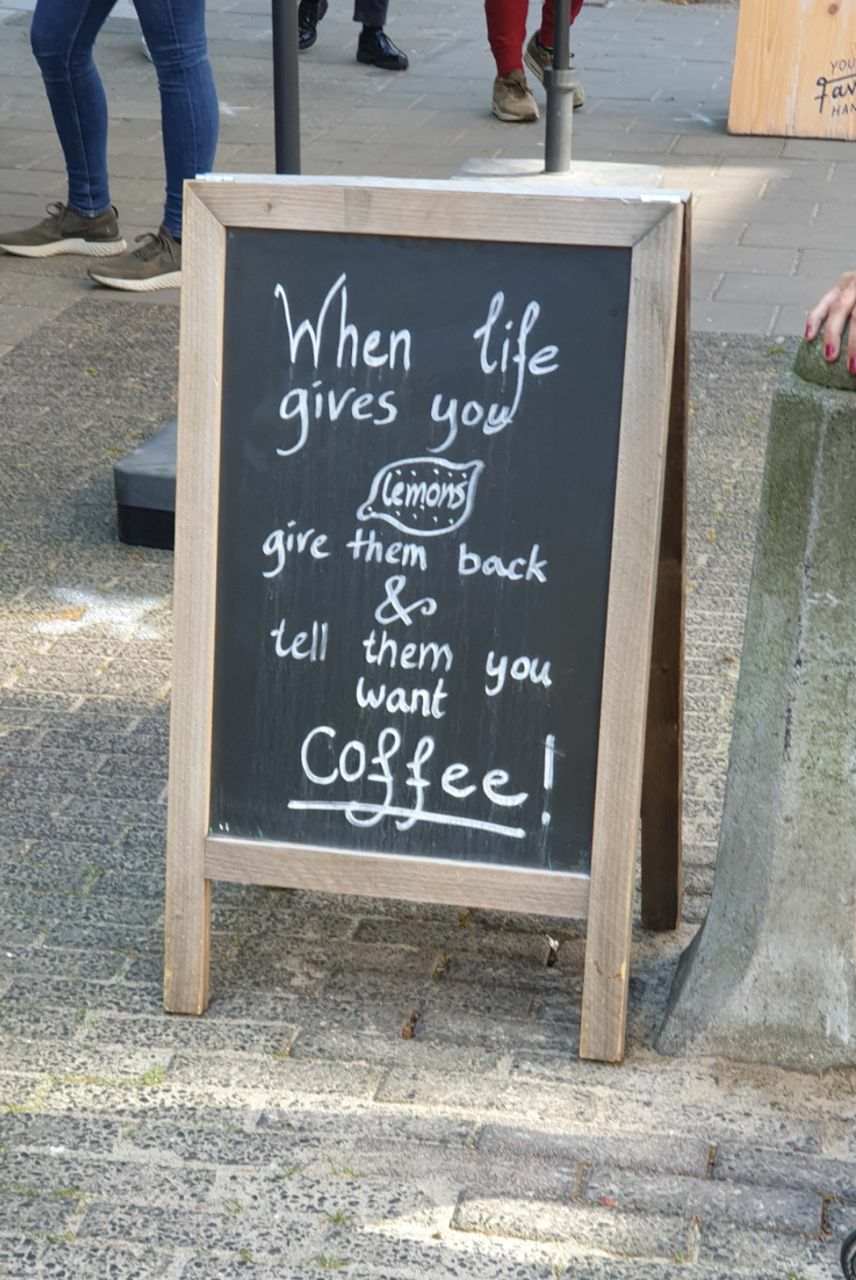 When life
gives you
lemons
give them back
&
tell them you
want
Coffee!
YOU
HAN